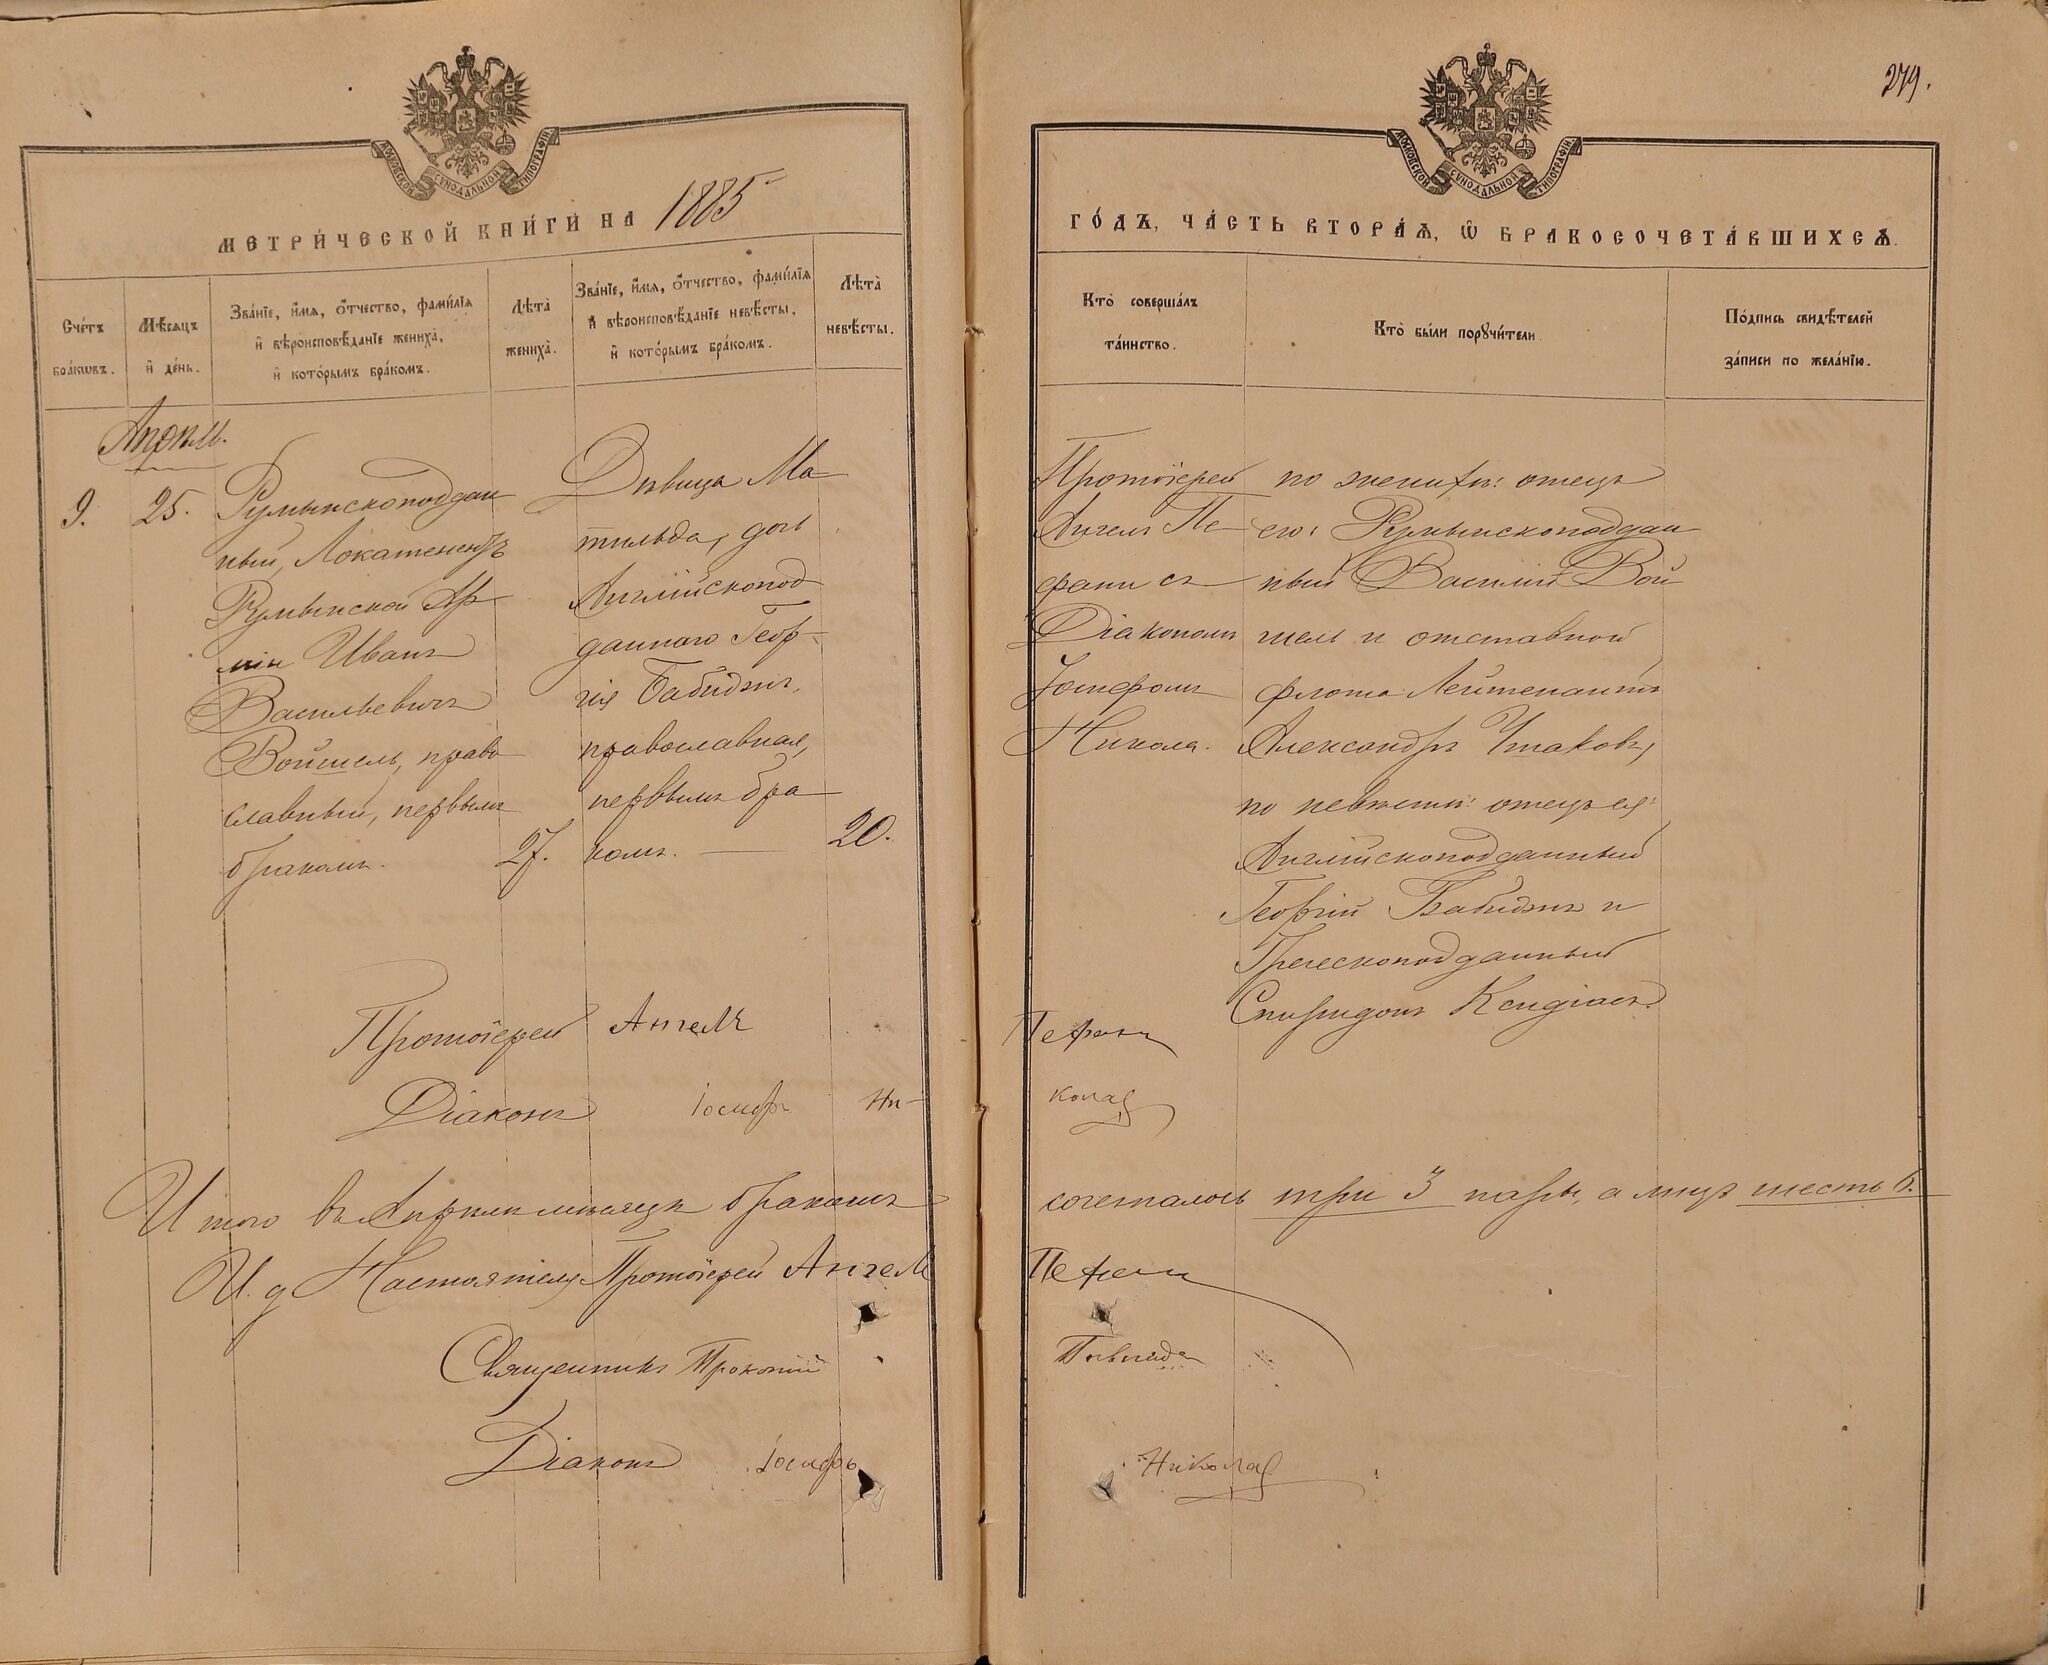 МОСКОВСКОЙ СѴНОДАЛЬНОЙ ТИПОГРАФІИ
МЕТРИ́ЧЕСКОЙ КНИ́ГИ НА 1885
Сче́тъ бра́кωвъ.
Мѣ́сяцъ и́ де́нь.
Зва́нїе, и́мѧ, ѻ҆́тчество, фами́лїѧ
и҆ вѣроисповѣ́данїе жениха̀,
и҆ кото́рымъ бра́комъ.
Лѣта̀ жениха̀.
Зва́нїе, и́мѧ, ѻ҆́тчество, фами́лїѧ
и҆ вѣроисповѣ́данїе невѣ́сты,
и҆ кото́рымъ бра́комъ.
Лѣта̀ невѣ́сты.
Апрѣль.
9.
25.
Румынскоподдан
ный, Локатенентъ
Румынской Ар
міи Иванъ
Васильевичъ
Войшель, право
славный, первымъ
бракомъ.
27.
Дѣвица Ма
тильда, дочь
Англійскопод
даннаго Геор
гія Бабиджъ,
православная,
первымъ бра
комъ.
20.
Протоіерей Ангелъ
Діаконъ Іосифъ Ни-
Итого въ Апрѣлѣ мѣсяцѣ бракомъ
И. д Настоятеля Протоіерей Ангел
Священникъ Прокопій
Діаконъ Іосифъ
279.
МОСКОВСКОЙ СѴНОДАЛЬНОЙ ТИПОГРАФІИ
ГО́ДЪ, ЧА́СТЬ ВТОРА́Ѧ, Ѽ БРАКОСОЧЕТА́ВШИХСѦ.
Кто̀ соверша́лъ
та́инство.
Кто̀ бы́ли порꙋчи́тели.
По́дпись свидѣ́телей
за́писи по жела́нїю.
Протоіерей
Ангелъ Пе
фани съ
Діакономъ
Іосифомъ
Никола.
по женихѣ: отецъ
его: Румынскоподдан
ный Василій Вой
шель и отставной
флота Лейтенантъ
Александръ Ушаковъ,
по невѣстѣ: отецъ ея:
Англійскоподданный
Георгій Бабиджъ и
Греческоподданный
Спиридонъ
Пефани
колаѣ
сочеталось три 3 пары, а лицъ шесть 6.
Пефани
Николаѣ